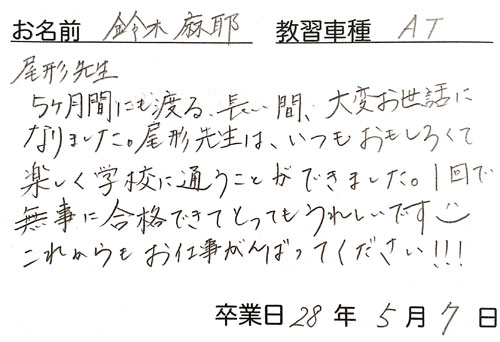 お名前 鈴木麻耶 教習車種 AT
尾形先生
5ヶ月間にも渡る、長い間、大変お世話に
なりました。尾形先生は、いつもおもしろくて
楽しく学校に通うことができました。1回で
無事に合格できてとってもうれしいです
これからもお仕事がんばってください!!!
卒業日 28 年 5 月 7 日